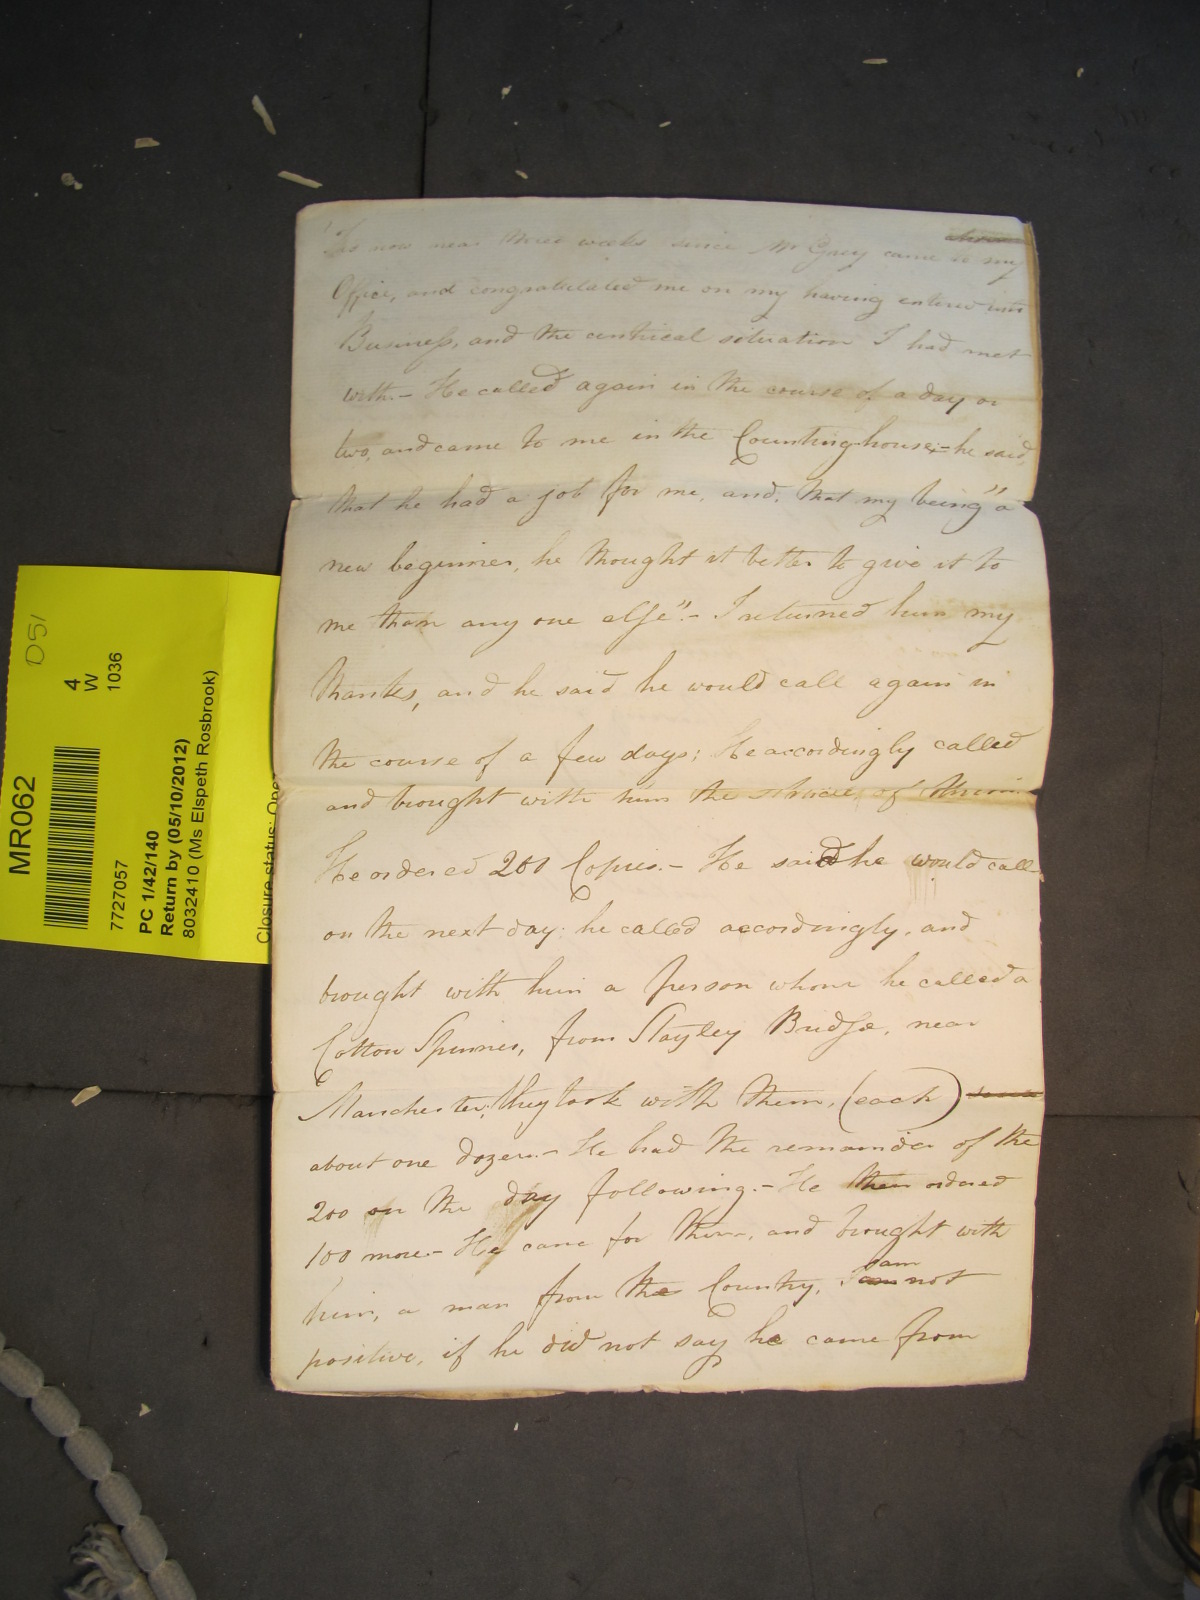 'Tis now near three weeks since Mr Gray came to my
Office, and congratulated me on my having entered into
Business, and the centrical situation I had met
with.– He called again in the course of a day or
two, and came to me in the Counting house;– he said,
that he had a job for me, and, that my being "a
new beginner, he thought it better to give it to
me than any one else".– I returned him my
thanks, and he said he would call again in
the course of a few days; He accordingly called
and brought with him the
He ordered 200 Copies.– He said he would call
on the next day: he called accordingly, and
brought with him a person whom he called a
Cotton Spinner, from Stayley Bridge, near
Manchester; they took with them, (each)
about one dozen.– He had the remainder of the
200 on the day following.– He then ordered
100 more– He came for them, and brought with
him, a man from the Country, I am not
positive, if he did not say he came from
MR062
D51
4
W
1036
7727057
PC 1/42/140
Return by (05/10/2012)
8032410 (Ms Elspeth Rosbrook)
Closure status: Ope